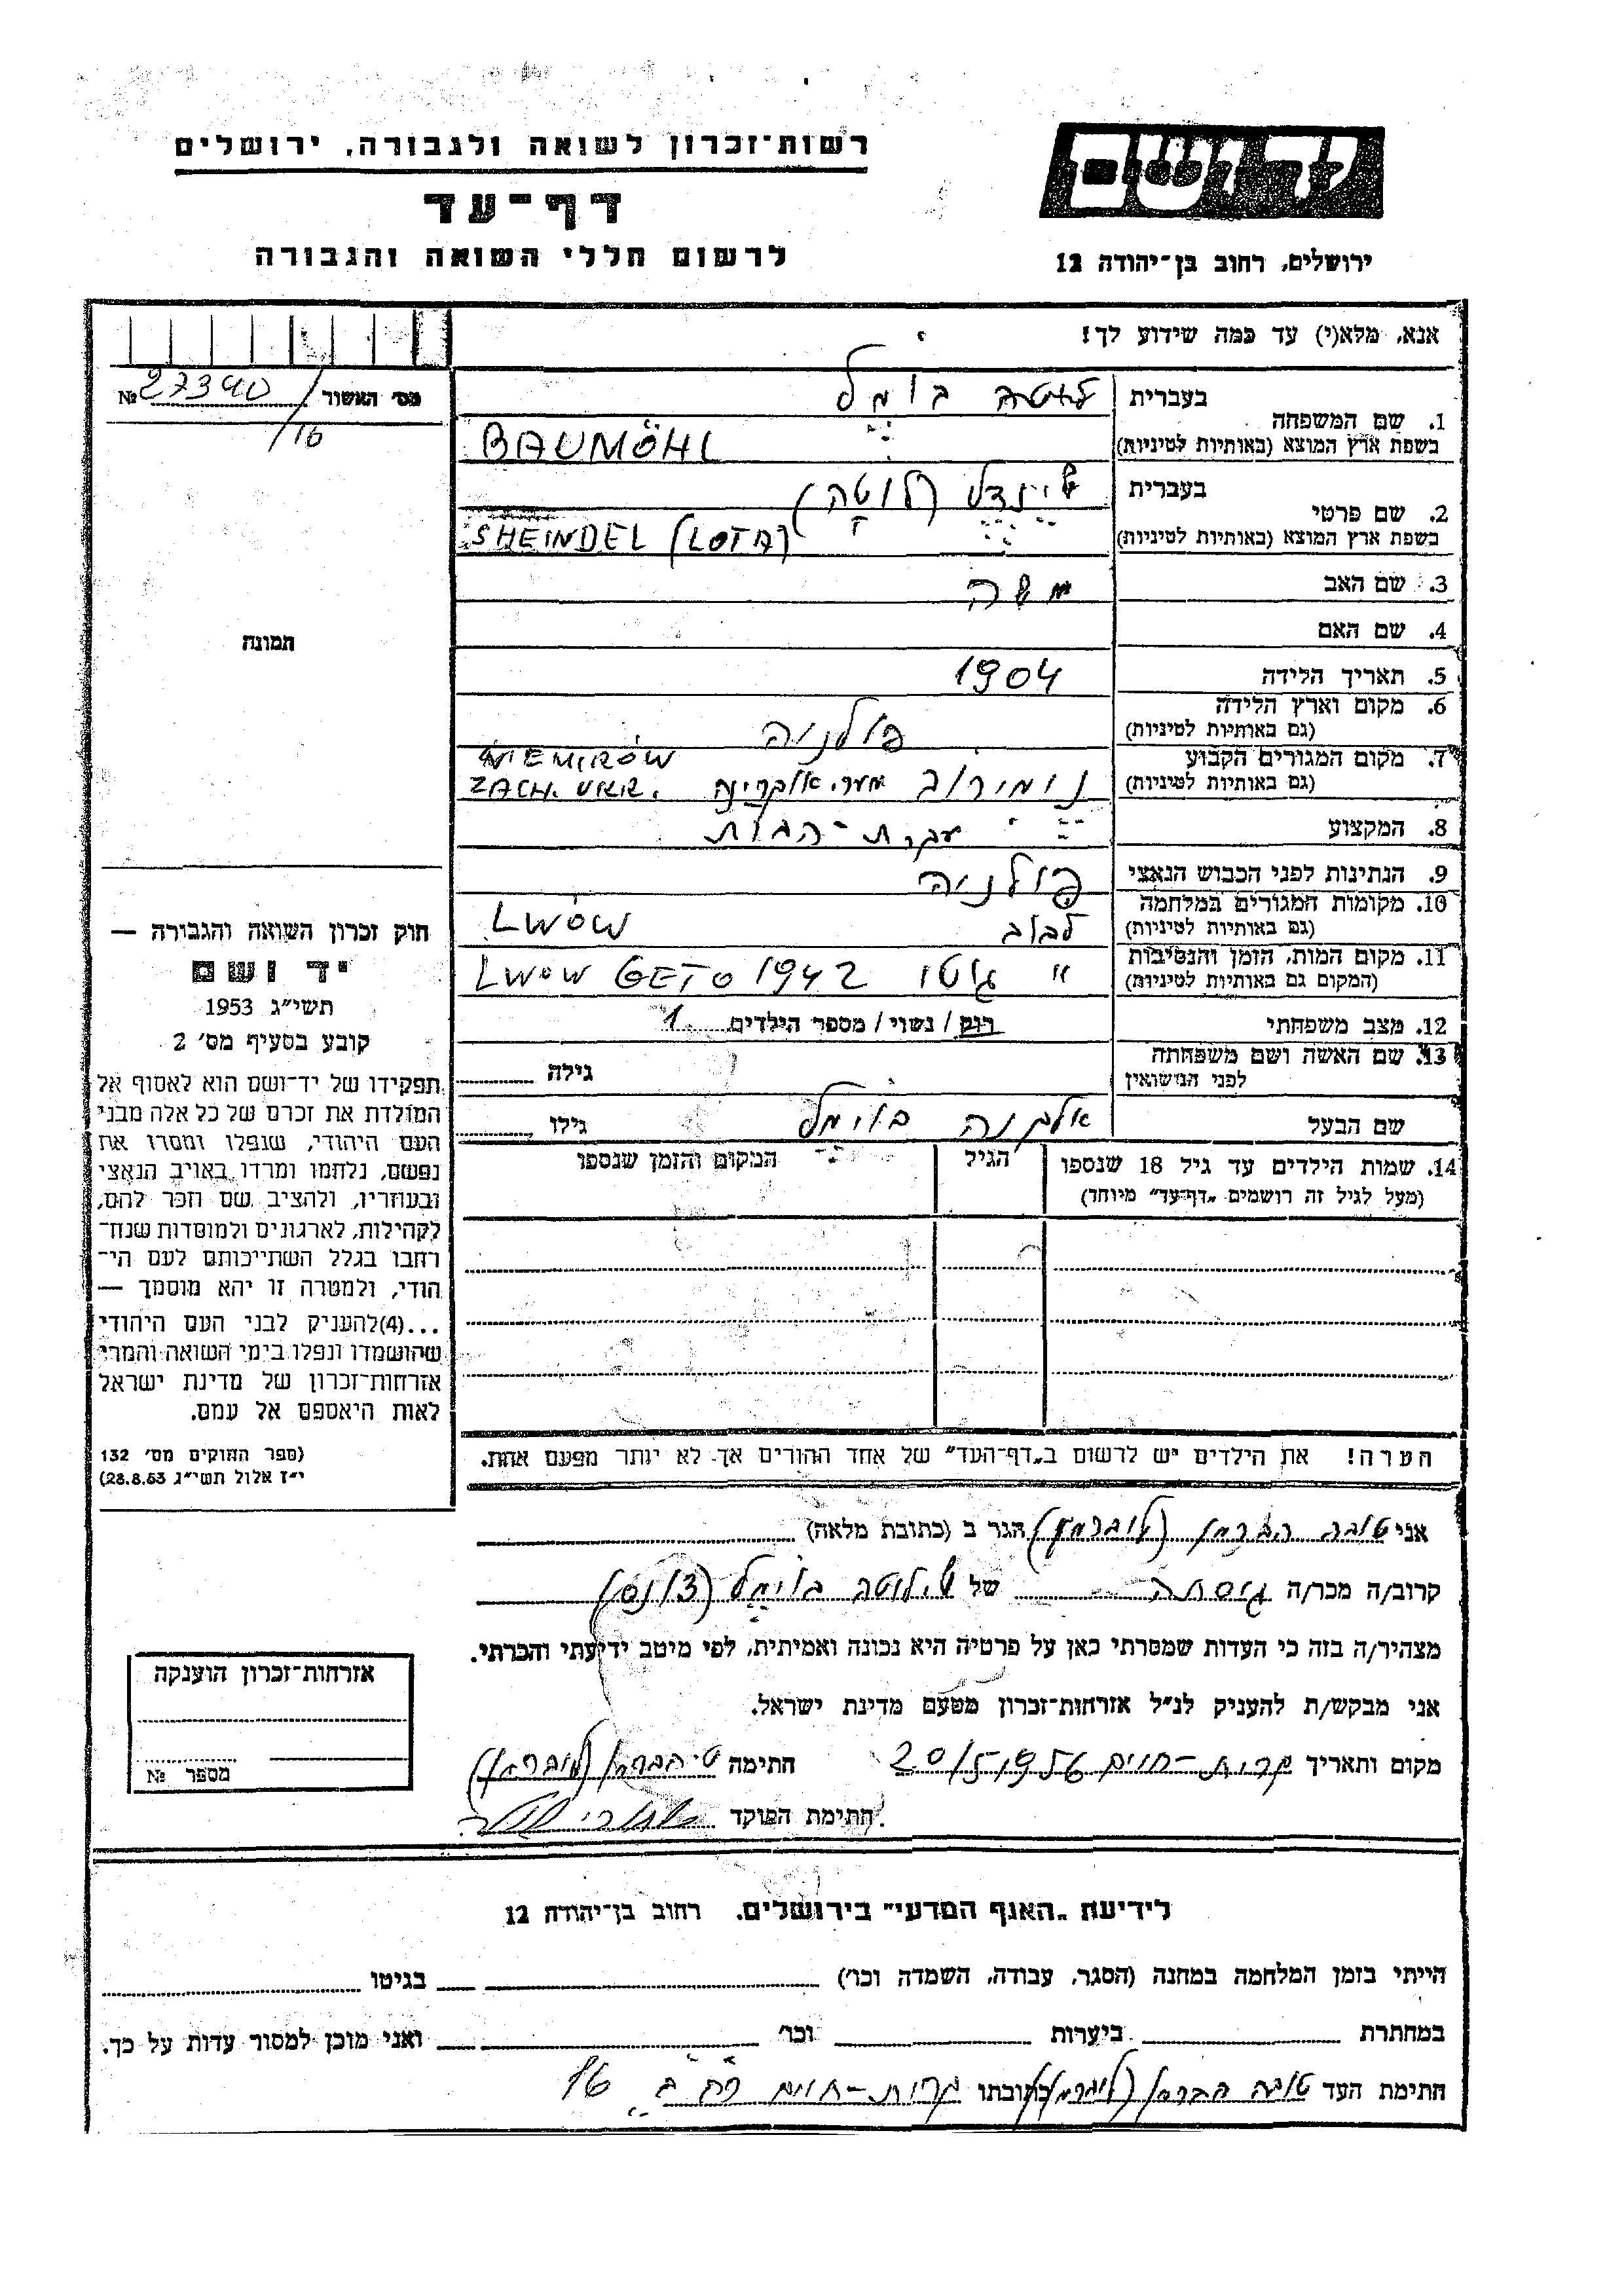 רשות־זכרון לשואה ולגבורה, ירושלים
יד ושם
דף־עד
לרשום חללי השואה והגבורה
ירושלים, רחוב בן־יהודה 12
אנא, מלא(י) עד כמה שידוע לך!
מס׳ האשור 27390 №
16
1. שם המשפחה
בעברית בוימל
בשפת ארץ המוצא (באותיות לטיניות) BAUMÖHL
2. שם פרטי
בעברית שיינדל (לוטה)
בשפת ארץ המוצא (באותיות לטיניות) SHEINDEL (LOTA)
3. שם האב משה
4. שם האם
5. תאריך הלידה 1904
6. מקום וארץ הלידה פולניה
(גם באותיות לטיניות)
7. מקום המגורים הקבוע NIEMIRÓW
(גם באותיות לטיניות) נימירוב מער. אוקריינה ZACH. UKR.
8. המקצוע עקרת-הבית
9. הנתינות לפני הכבוש הנאצי פולניה
10. מקומות המגורים במלחמה LWÓW
(גם באותיות לטיניות) לבוב
11. מקום המות, הזמן והנסיבות " גיטו LWOW GETO 1942
(המקום גם באותיות לטיניות)
12. מצב משפחתי רווק / נשוי / מספר הילדים 1
13. שם האשה ושם משפחתה גילה
לפני הנישואין
שם הבעל אלקנה בוימל גילו
14. שמות הילדים עד גיל 18 שנספו הגיל המקום והזמן שנספו
(מעל לגיל זה רושמים „דף־עד״ מיוחד)
הערה! את הילדים יש לרשום ב„דף־העד״ של אחד ההורים אך לא יותר מפעם אחת.
תמונה
חוק זכרון השואה והגבורה —
יד ושם
תשי״ג 1953
קובע בסעיף מס׳ 2
תפקידו של יד־ושם הוא לאסוף אל
המולדת את זכרם של כל אלה מבני
העם היהודי, שנפלו ומסרו את
נפשם, נלחמו ומרדו באויב הנאצי
ובעוזריו, ולהציב שם וזכר להם,
לקהילות, לארגונים ולמוסדות שנח־
רבו בגלל השתייכותם לעם הי־
הודי, ולמטרה זו יהא מוסמך —
...(4)להעניק לבני העם היהודי
שהושמדו ונפלו בימי השואה והמרי
אזרחות־זכרון של מדינת ישראל
לאות היאספם אל עמם.
(ספר החוקים מס׳ 132
י״ז אלול תשי״ג 28.8.53)
אני טובה הברמן (ליברמן) הגר ב (כתובת מלאה)
קרוב/ה מכר/ה גיסתה של בוימל
מצהיר/ה בזה כי העדות שמסרתי כאן על פרטיה היא נכונה ואמיתית, לפי מיטב ידיעתי והכרתי.
אני מבקש/ת להעניק לנ״ל אזרחות־זכרון מטעם מדינת ישראל.
מקום ותאריך קרית-חיים 20/5 1956 חתימה ט. הברמן (ליברמן)
חתימת הפוקד
אזרחות־זכרון הוענקה
מספר №
לידיעת „האגף המדעי״ בירושלים, רחוב בן־יהודה 12
הייתי בזמן המלחמה במחנה (הסגר, עבודה, השמדה וכו׳) בגיטו
במחתרת ביערות וכו׳ ואני מוכן למסור עדות על כך.
חתימת העד טובה הברמן (ליברמן) כתובתו קרית-חיים 16